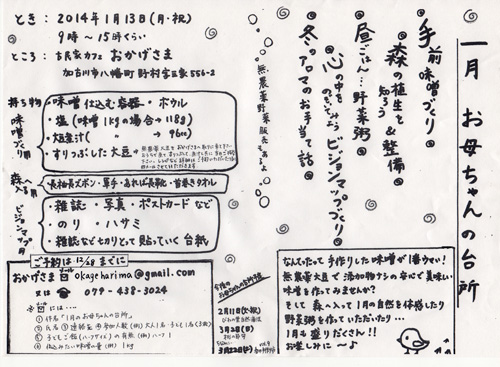 一月 お母ちゃんの台所
手前味噌づくり
森の植生を知ろう&整備
昼ごはん…野菜粥
心の中をのぞいてみよう ビジョンマップづくり
冬のアロマのお手当て話
無農薬野菜販売もするよ
とき:2014年1月13日(月・祝)
9時〜15時くらい
ところ:古民家カフェ おかげさま
加古川市八幡町野村字五家556-2
持ち物
味噌づくり用
・味噌仕込む容器・ボウル
・塩(味噌1kgの場合→118g)
(〃 96cc)
・すりつぶした大豆
森へ入る用
・長袖長ズボン・軍手・あれば長靴・首巻きタオル
ビジョンマップ用
・雑誌・写真・ポストカードなど
・のり・ハサミ
・雑誌などを切りとって貼っていく台紙
ご予約は12/28までに
おかげさま okageharima@gmail.com
又は 079-438-3024
には…
①件名「1月のお母ちゃんの台所」
今後のお母ちゃんの台所予定
2月11日(火・祝)
3月2日(日)
3月22日(土)
なんてったって手作りした味噌が1番ウマイ!
無農薬大豆で添加物ナシの安心で美味しい
味噌を作ってみませんか?
そして森へ入って1月の自然を体感したり
野菜粥を作っていただいたり…
1月も盛りだくさん!!
お楽しみに〜♪